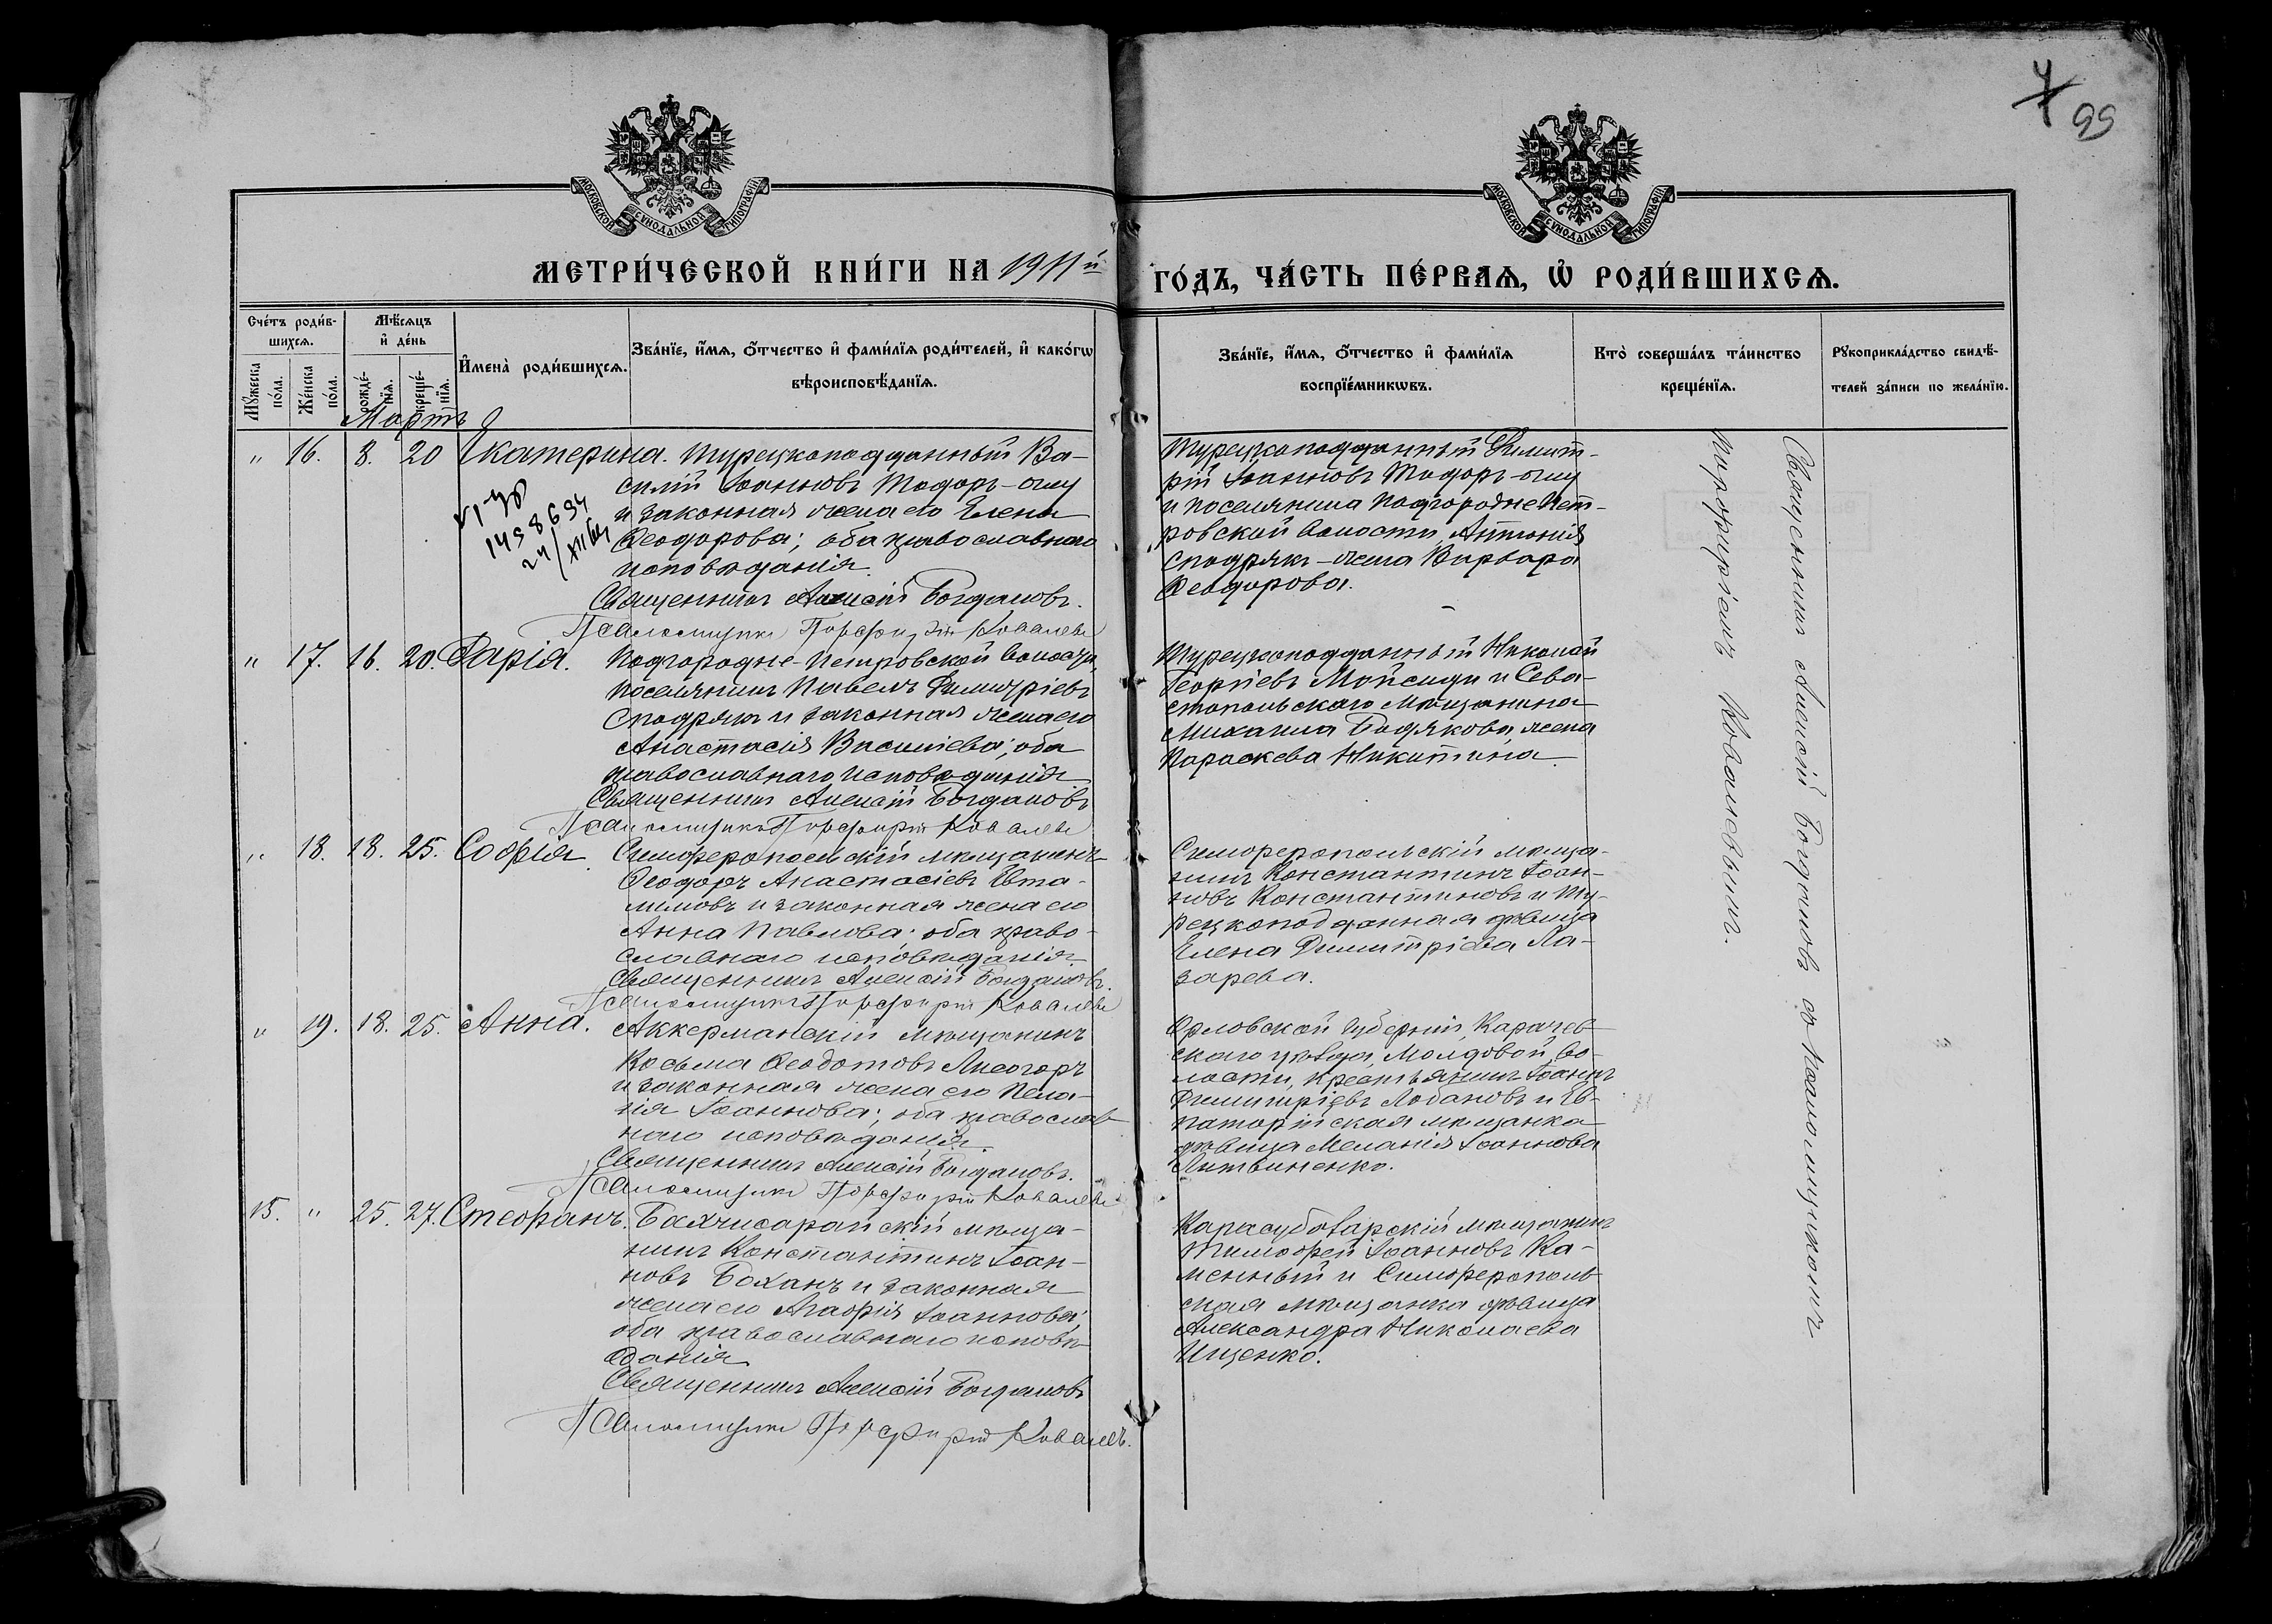 7
99
МОСКОВСКОЙ СѴНОДАЛЬНОЙ ТИПОГРАФІИ
МОСКОВСКОЙ СѴНОДАЛЬНОЙ ТИПОГРАФІИ
МЕТРИ́ЧЕСКОЙ КНИ́ГИ НА 1911й
ГО́ДЪ, ЧА́СТЬ ПЕ́РВАѦ, Ѽ РОДИ́ВШИХСѦ.
Сче́тъ роди́в-
шихсѧ.
Мꙋ́жеска по́ла.
Же́нска по́ла.
Мѣ́сѧцъ
и҆ де́нь
рожде́-
нїѧ.
креще́-
нїѧ.
И҆мена̀ роди́вшихсѧ.
Зва́нїе, и҆́мѧ, ѻ҆́тчество и҆ фами́лїѧ роди́телей, и҆ како́гѡ
вѣроисповѣ́данїѧ.
Зва́нїе, и҆́мѧ, ѻ҆́тчество и҆ фами́лїѧ
воспрїе́мникѡвъ.
Кто̀ соверша́лъ та́инство
креще́нїѧ.
Рꙋкоприкла́дство свидѣ́-
телей за́писи по жела́нїю.
Мартъ
" 16. 8. 20 Екатерина. Турецкоподданный Ва-
силій Іоанновъ Тодоръ-оглу
и законная жена его Елена
Ѳеодорова; оба православнаго
исповѣданія.
Священникъ Алексій Богдановъ.
Псаломщикъ Порфирій Ковалевъ
1458634
Турецкоподданный Димит-
рій Іоанновъ Тодоръ-оглу
и поселянина Подгородне-Пет-
ровской волости, Антонія
Сподрякъ-жена Варвара
Ѳеодорова.
" 17. 16. 20. Дарія. Подгородне-Петровской волости
поселянинъ Павелъ Димитріевъ
Сподрякъ и законная жена его
Анастасія Василіева; оба
православнаго исповѣданія
Священникъ Алексій Богдановъ
Псаломщикъ Порфирій Ковалевъ
Турецкоподданный Николай
Георгіевъ и Сева-
стопольскаго мѣщанина
Михаила Бодякова жена
Параскева Никитина.
" 18. 18. 25. Софія. Симферопольскій мѣщанинъ
Ѳеодоръ Анастасіевъ Евта-
и законная жена его
Анна Павлова; оба право-
славнаго исповѣданія
Священникъ Алексій Богдановъ.
Псаломщикъ Порфирій Ковалевъ
Симферопольскій мѣща-
нинъ Константинъ Іоан-
новъ Константиновъ и Ту-
рецкоподданная дѣвица
Елена Димитріева Ла-
зарева.
" 19. 18. 25. Анна. Аккерманскій мѣщанинъ
Косьма Ѳеодотовъ Лисогоръ
и законная жена его Пела-
гія Іоаннова; оба православ-
наго исповѣданія.
Священникъ Алексій Богдановъ.
Псаломщикъ Порфирій Ковалевъ
Орловской губерніи, Карачев-
скаго уѣзда, Молдовой во-
лости, крестьянинъ Іоаннъ
Димитріевъ Лобановъ и Ев-
паторійская мѣщанка
дѣвица Меланія Іоаннова
Литвиненко.
15. " 25. 27. Стефанъ. Бахчисарайскій мѣща-
нинъ Константинъ Іоан-
новъ Боханъ и законная
жена его Агафія Іоаннова;
оба православнаго исповѣ-
данія
Священникъ Алексій Богдановъ
Псаломщикъ Порфирій Ковалевъ.
Карасубазарскій мѣщанинъ
Тимофей Іоанновъ Ка-
менный и Симферополь-
ская мѣщанка дѣвица
Александра Николаева
Ищенко.
Священникъ Алексій Богдановъ съ псаломщикомъ
Порфиріемъ Ковалевымъ.